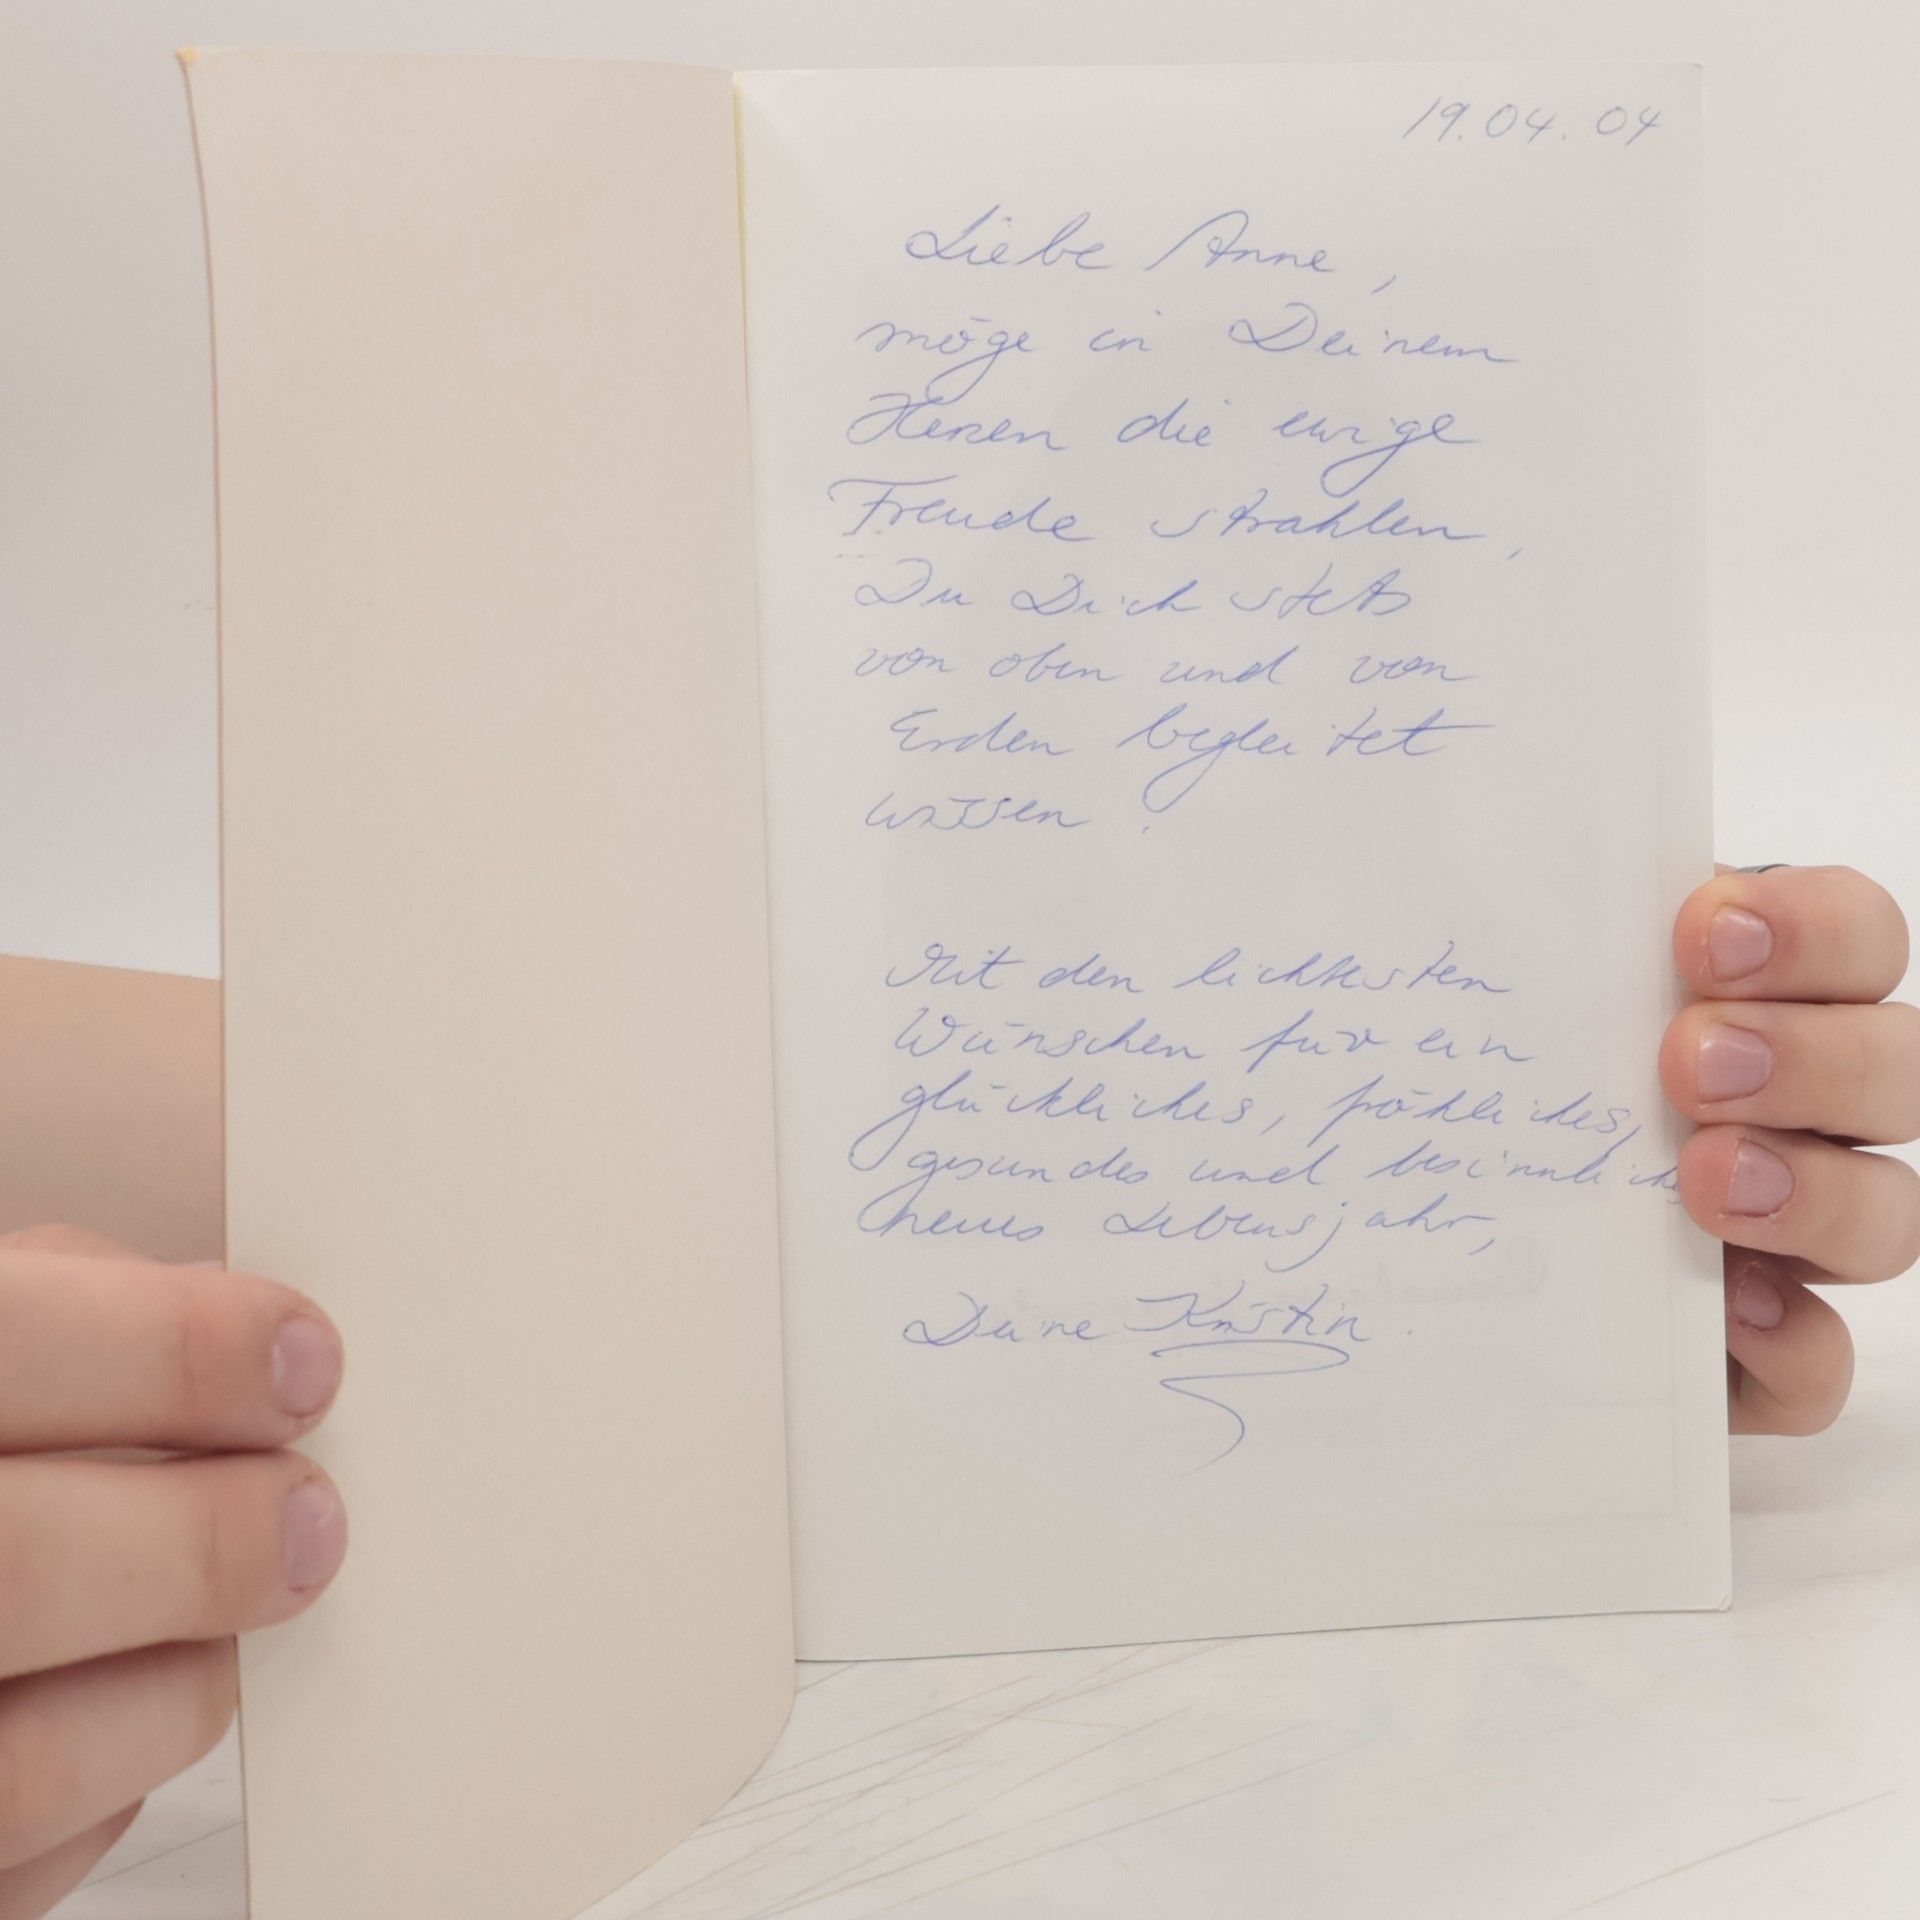 19.04.04
Liebe Anne,
möge in Deinem
Herzen die ewige
Freude strahlen,
Du Dich stets
von oben und von
Erden begleitet
wissen!
Mit den lichtesten
Wünschen für ein
glückliches, fröhliches,
gesundes und besinnliches
neues Lebensjahr,
Deine Kristin.